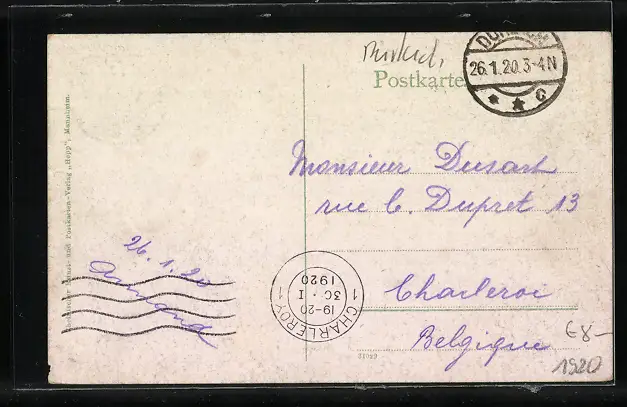 Postkarte
26.1.20.3-4N
* * C
Monsieur Dusart
rue C. Dupret 13
Charleroi
Belgique
26.1.20
Armand
CHARLEROY
1 1
19-20
30·I
1920
Kunst- und Postkarten-Verlag „Hepp“, Mannheim.
31929
€8-
1920